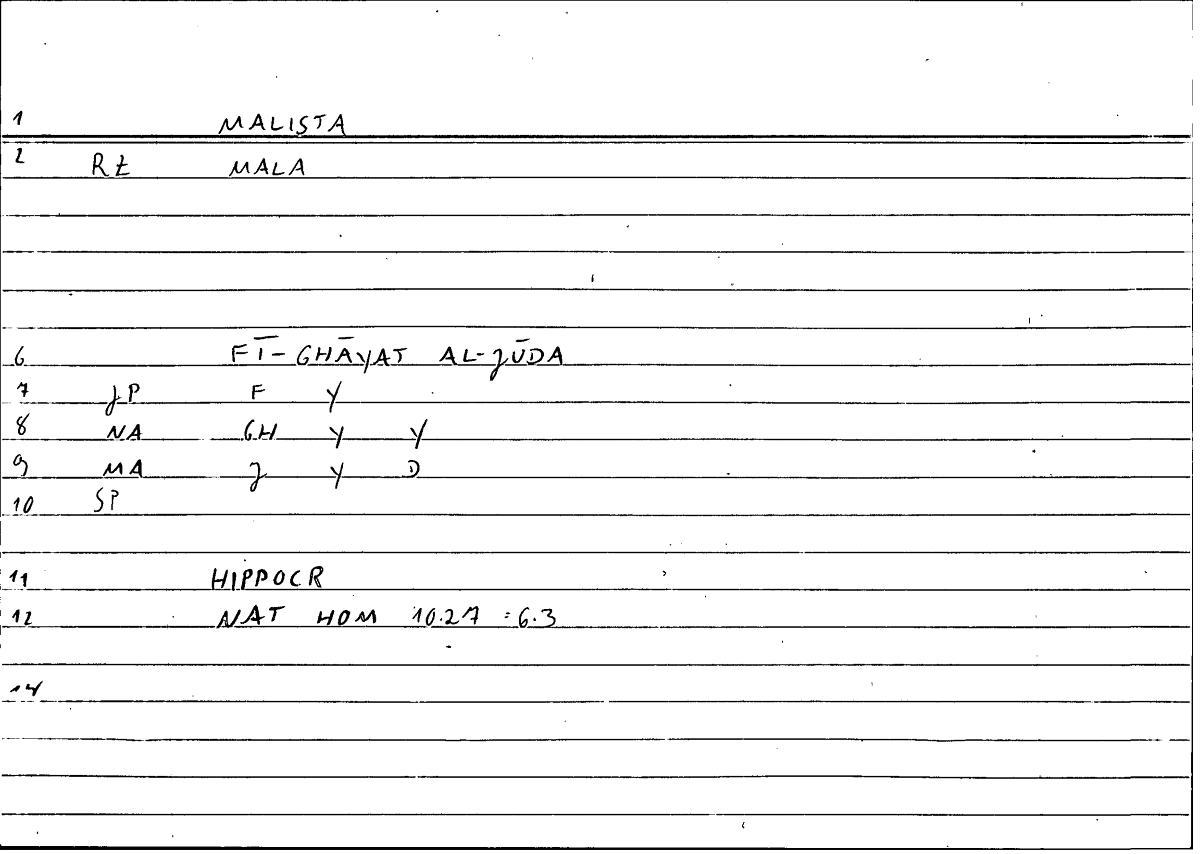 1 MALISTA
2 RŁ MALA
6 FĪ-GHĀYAT AL-JŪDA
7 JP F Y
8 NA GH Y Y
9 MA J Y D
10 SP
11 HIPPOCR
12 NAT HOM 10.27 = 6.3
14